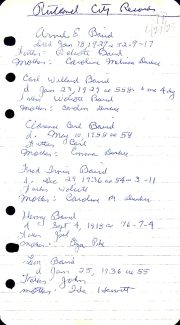 Rutland City Records
Arnol E Baird
Died Jan 18, 1927 ae 52-9-17
Father: Wolcott Baird
Mother: Caroline Melissa Durkee
Carl Willard Baird
d. Jan 23, 1927 ae 55 yr 1 mo 4 dy
Father Wolcott Baird
Mother: Caroline Durkee
Earl Baird
d. May 10, 1958 ae 59
Father Carl
Mother: Emma Durkee
Fred Irvin Baird
d. Dec 29, 1936 ae 54-3-11
Father Wolcott
Mother: Caroline M. Durkee
Henry Baird
d Sept 4, 1918 ae 76-7-4
Father
Mother:
Baird
d Jan 25, 1936 ae 55
Father John
Mother: Ida Hewitt